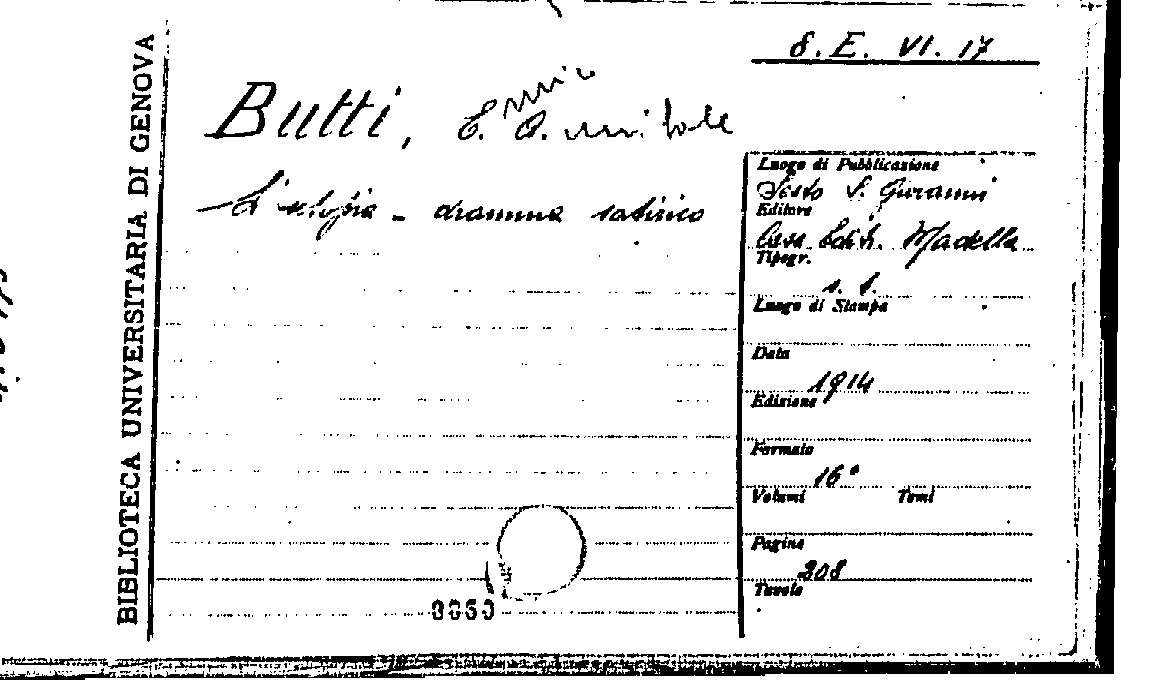 BIBLIOTECA UNIVERSITARIA DI GENOVA
8. E. VI. 17
Butti, E. A.
L'utopia - dramma satirico
Luogo di Pubblicazione
Sesto S. Giovanni
Editore
Casa Edit. Madella
Tipogr.
s. t.
Luogo di Stampa
Data
1914
Edizione
Formato
16°
Volumi Tomi
Pagine
308
Tavole